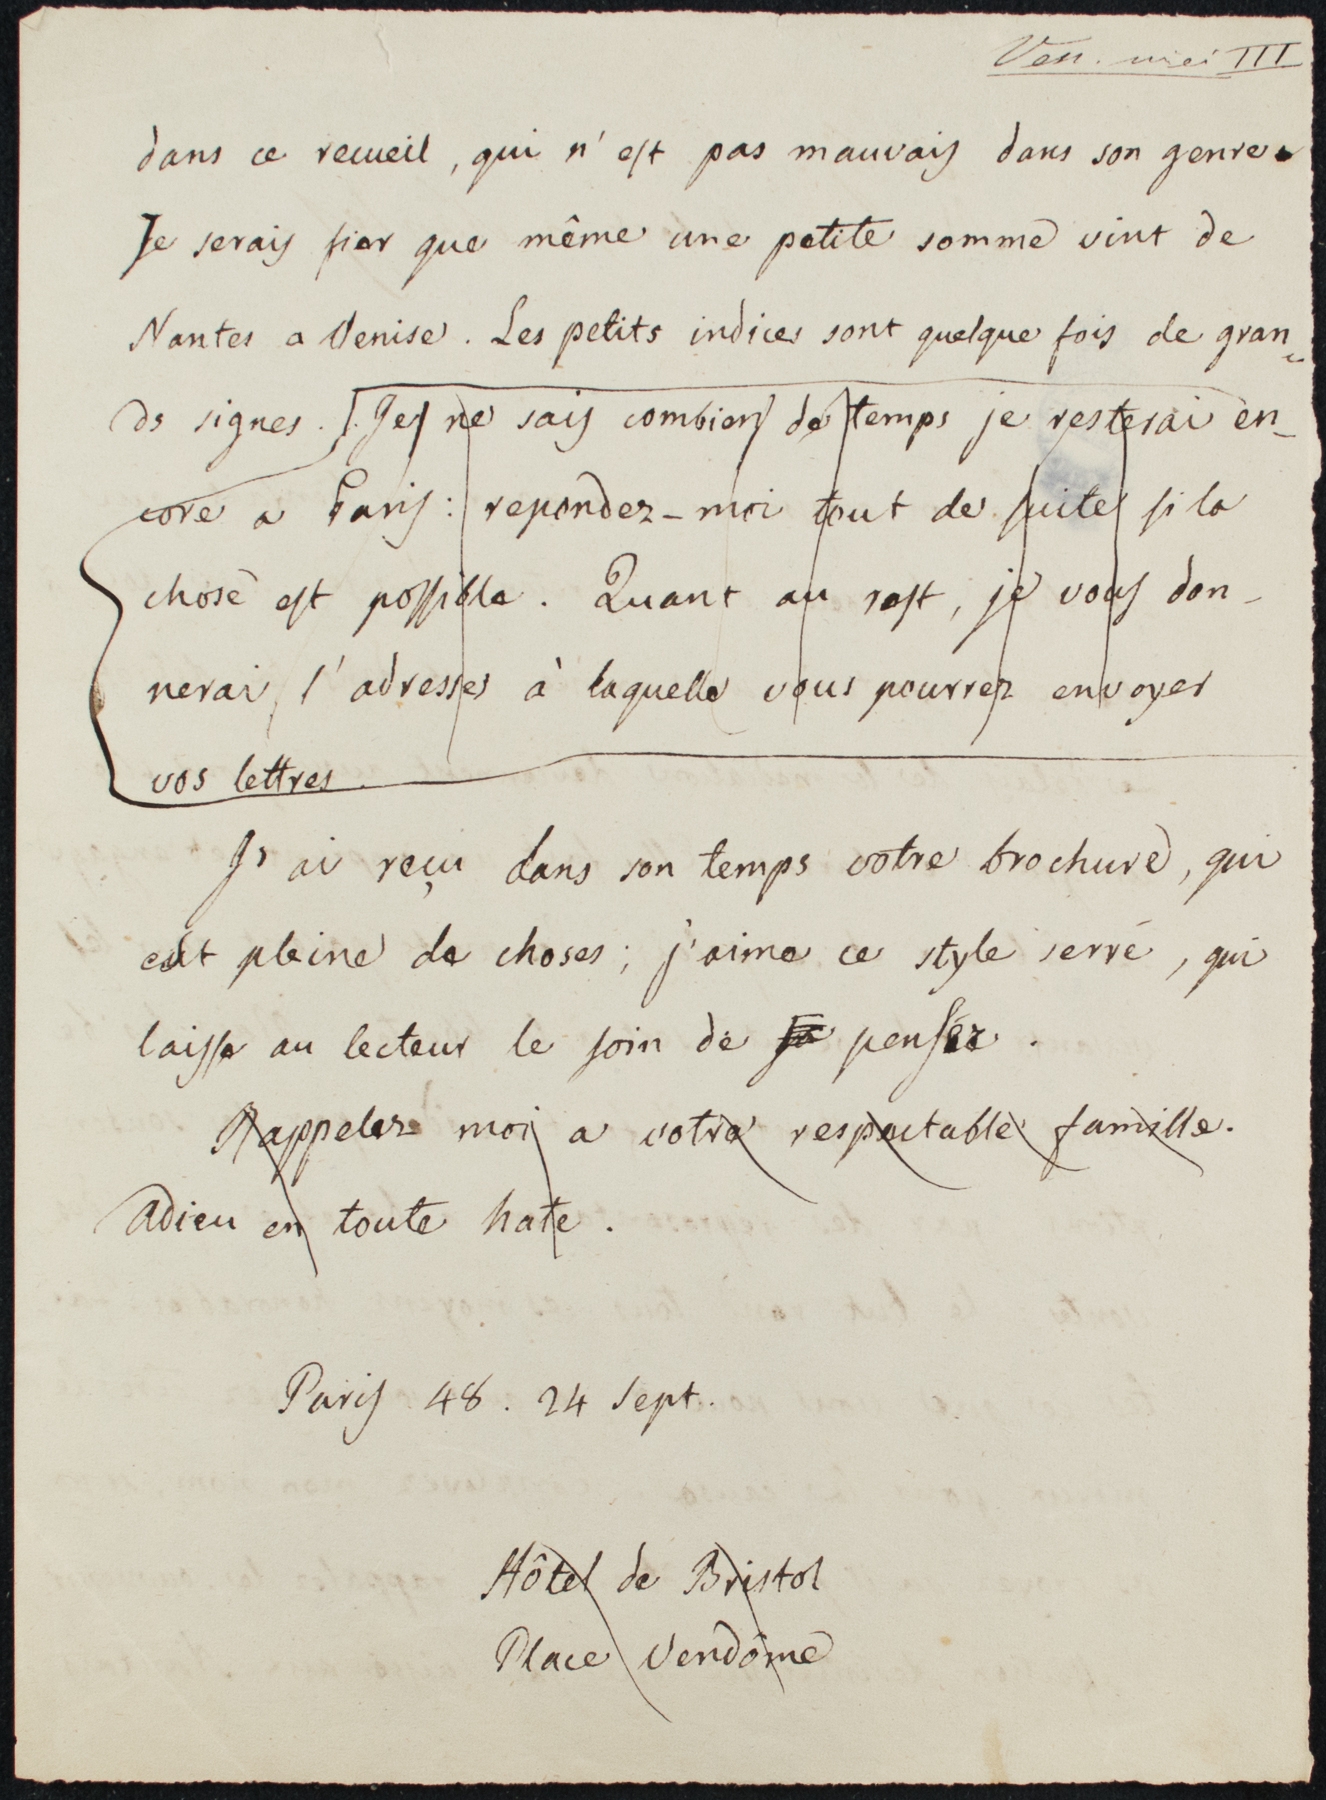 Ven. miei III
dans ce recueil, qui n'est pas mauvais dans son genre.
Je serais fier que même une petite somme vint de
Nantes a Venise. Les petits indices sont quelque fois de gran-
ds signes. Je ne sais combien de temps je resterai en-
core a Paris: repondez-moi tout de suite si la
chose est possible. Quant au rest, je vous don-
nerai l'adresses à laquelle vous pourrez envoyer
vos lettres.
J'ai reçu dans son temps votre brochure, qui
est pleine de choses; j'aime ce style serré, qui
laisse au lecteur le soin de penser.
Rappelez moi a votre respectable famille.
Adieu en toute hate.
Paris 48. 24 Sept.
Hôtel de Bristol
Place Vendôme